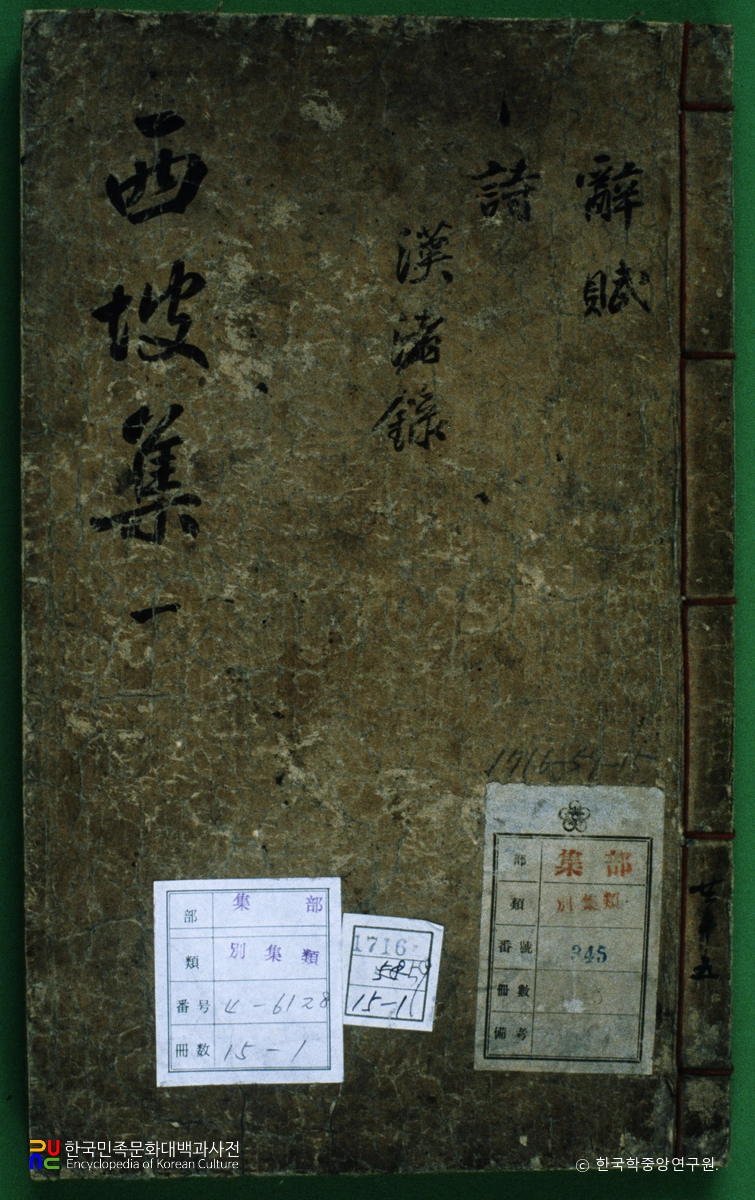 辭賦
詩
漢渚錄
西坡集 一
1716-59-15
部 集部
類 別集類
番號 345
冊數
備考
部 集部
類 別集類
番号 4-6128
冊数 15-1
1716
15-1
한국민족문화대백과사전
Encyclopedia of Korean Culture
© 한국학중앙연구원.